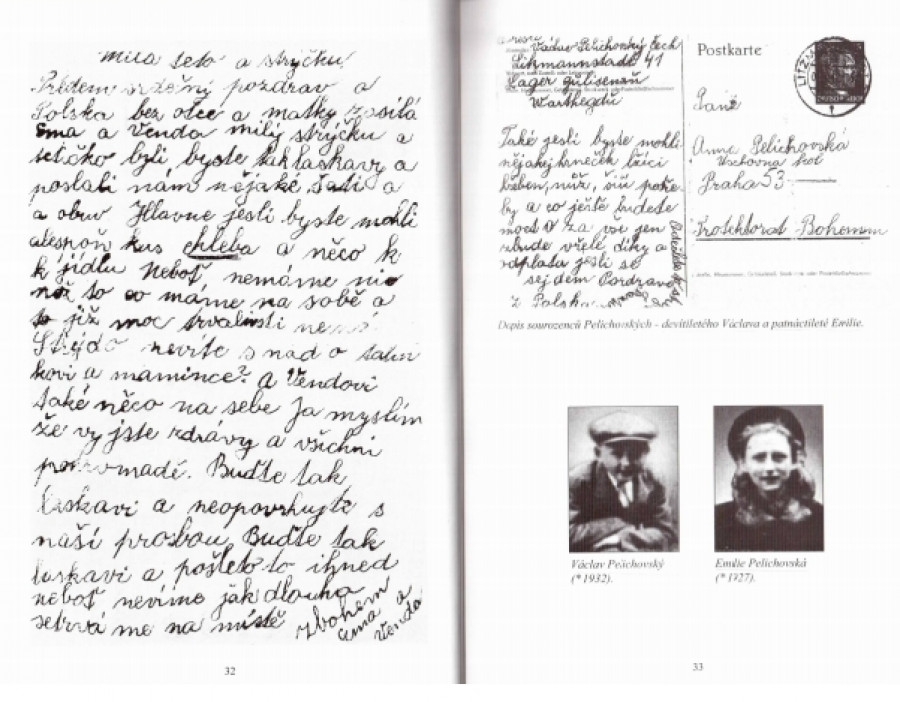 Milá teto a strýčku
Předem srdečný pozdrav a
Polska bez otce a matky zasílá
Ema a Venda milý strýčku a
tetičko byli byste tak laskavy a
poslali nám nějaké šati a
a obuv Hlavne jesli byste mohli
alespoň kus chleba a něco k
k jídlu neboť nemáme nic
než to co máme na sobě a
to již moc trvalosti nemá
Strýčo nevíte snad o tatin
kovi a mamince? a Vendovi
také něco na sebe Ja myslím
že vy jste zdrávy a všichni
pohromadě. Buďte tak
laskavi a neopovrhujte s
naší prosbou Buďte tak
laskavi a pošlete to ihned
neboť nevíme jak dlouho
setrvá me na místě
zbohem
ema a
Venda
32
Václav Pelichovský Čech
Litzmannstadt 41
Lager
Warthegau
Také jesli byste mohli
nějakej haneček lžíci
hřeben, nůž, šití potře
by a co ještě budete
moct O za vše jen
zbude vřele díky a
odplata jesli se
sejdem Pozdrav
z Polska
Postkarte
Paní
Anna Pelichovská
Praha 53
Protektorat Bohemm
Dopis sourozenců Pelichovských - devítiletého Václava a patnáctileté Emílie.
Václav Pelichovský
(*1932).
Emílie Pelichovská
(*1927).
33